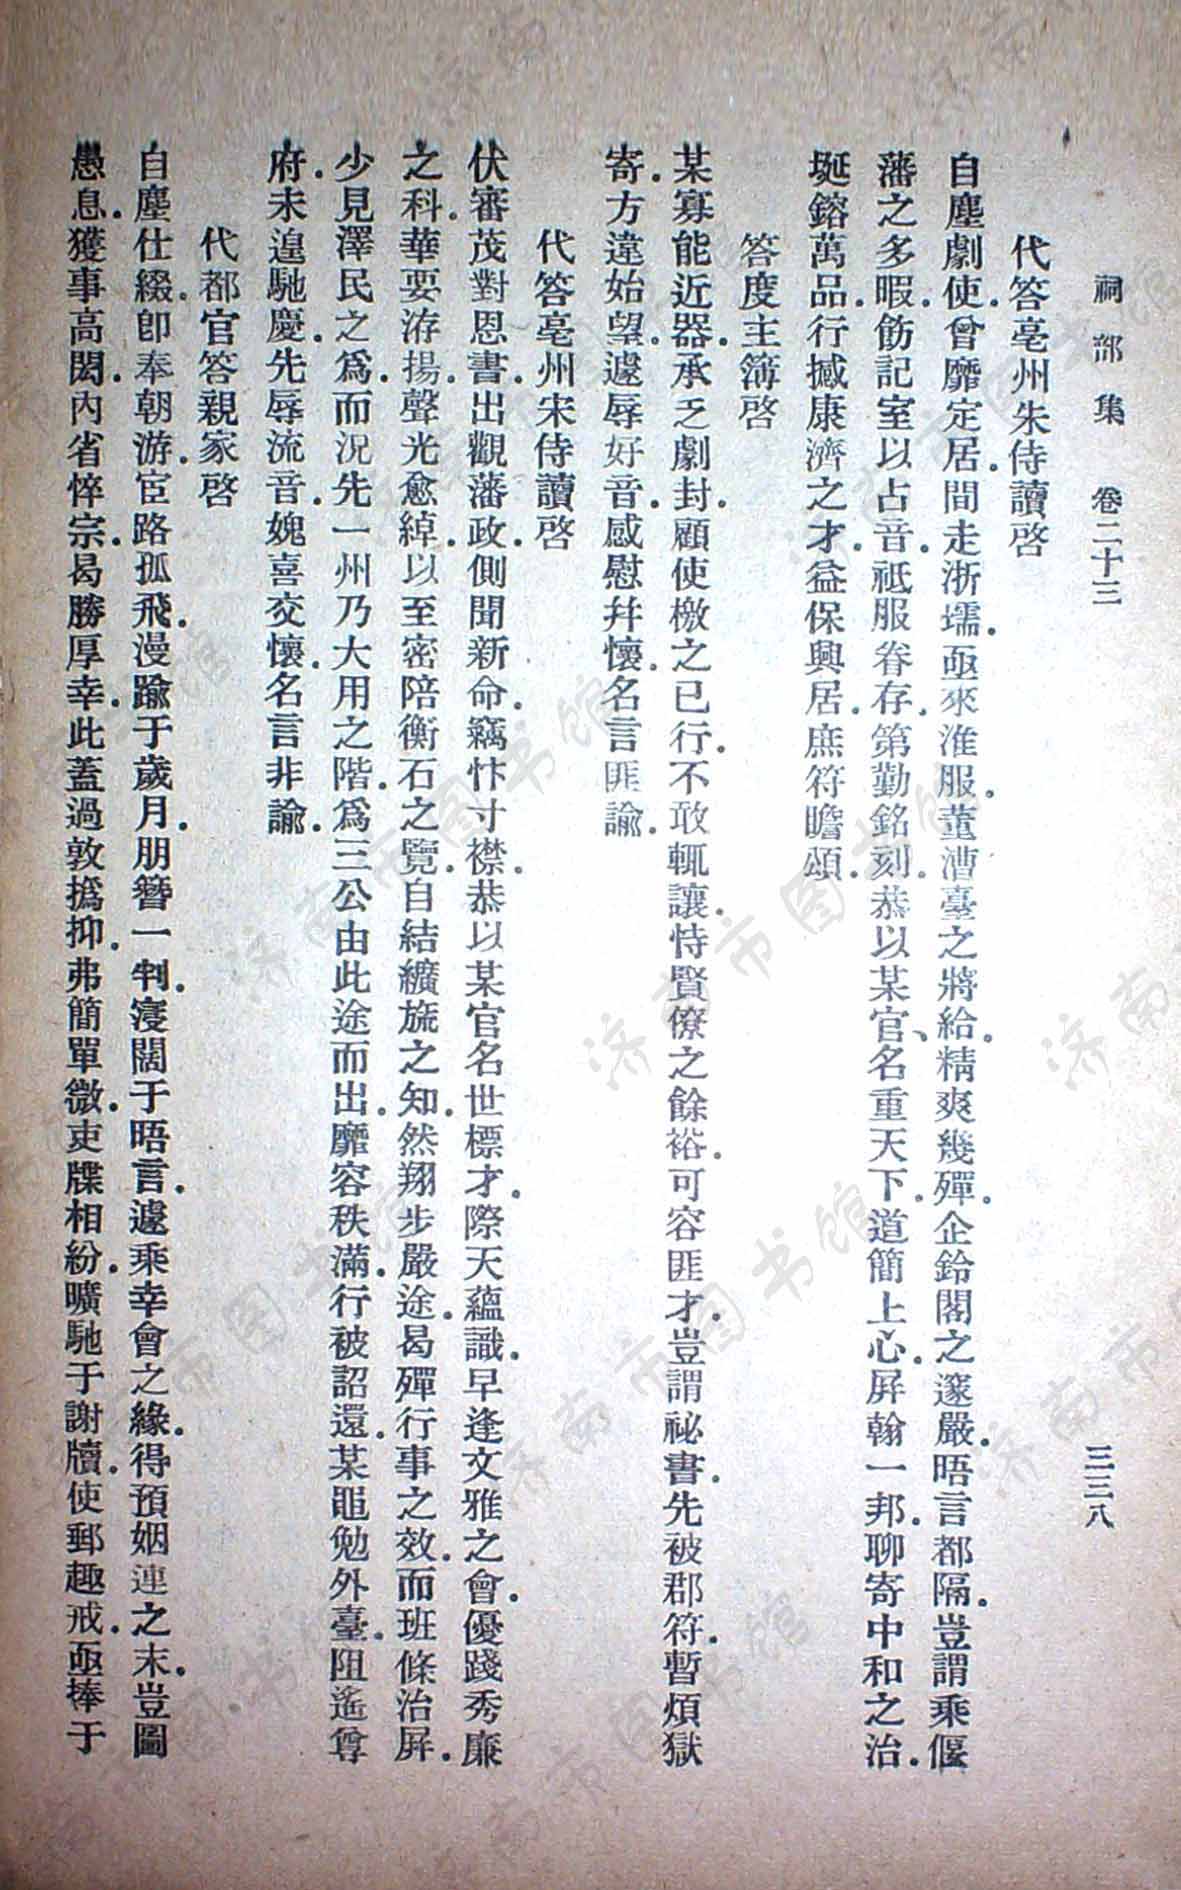 祠部集 卷二十三 三三八
代答亳州朱侍讀啓
自塵劇使．曾靡定居．間走浙壖．亟來淮服．董漕臺之將給．精爽幾殫．企鈴閣之邃嚴．晤言都隔．豈謂乘偃
藩之多暇．飭記室以占音．祇服眷存．第勤銘刻．恭以某官、名重天下．道簡上心．屏翰一邦．聊寄中和之治．
埏鎔萬品．行撼康濟之才．益保興居．庶符瞻頌．
答度主簿啓
某寡能近器．承乏劇封．顧使檄之已行．不敢輒讓．恃賢僚之餘裕．可容匪才．豈謂祕書．先被郡符．暫煩獄
寄．方違始望．遽辱好音．感慰幷懷．名言匪諭．
代答亳州宋侍讀啓
伏審茂對恩書．出觀藩政．側聞新命．竊忭寸襟．恭以某官名世標才．際天蘊識．早逢文雅之會．優踐秀廉
之科．華要洊揚．聲光愈綽．以至密陪衡石之覽．自結纊旒之知．然翔步嚴途．曷殫行事之效．而班條治屏．
少見澤民之爲．而況先一州乃大用之階．爲三公由此途而出．靡容秩滿．行被詔還．某黽勉外臺．阻遙尊
府．未遑馳慶．先辱流音．媿喜交懷．名言非諭．
代都官答親家啓
自塵仕綴．卽奉朝游．宦路孤飛．漫踰于歲月．朋簪一判．寖闊于晤言．遽乘幸會之緣．得預姻連之末．豈圖
愚息．獲事高閎．內省悴宗．曷勝厚幸．此蓋過敦撝抑．弗簡單微．吏牒相紛．曠馳于謝牘．使郵趣戒．亟捧于